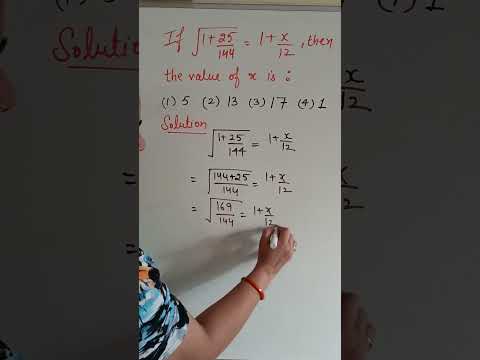 If √(1+25/144) = 1+x/12, then
the value of x is :
(1) 5 (2) 13 (3) 17 (4) 1
Solution
√(1+25/144) = 1+x/12
= √((144+25)/144) = 1+x/12
= √(169/144) = 1+x/12